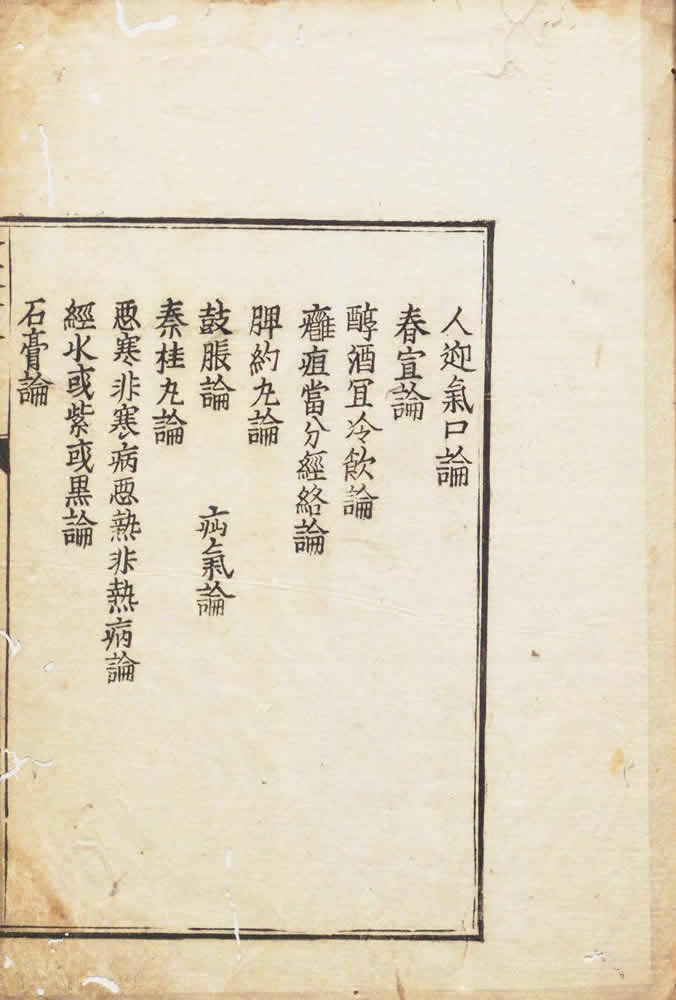 人迎氣口論
春宣論
醇酒冝冷飲論
癰疽當分經絡論
脾約丸論
鼓脹論　病氣論
秦桂丸論
惡寒非寒病惡熱非熱病論
經水或紫或黒論
石膏論